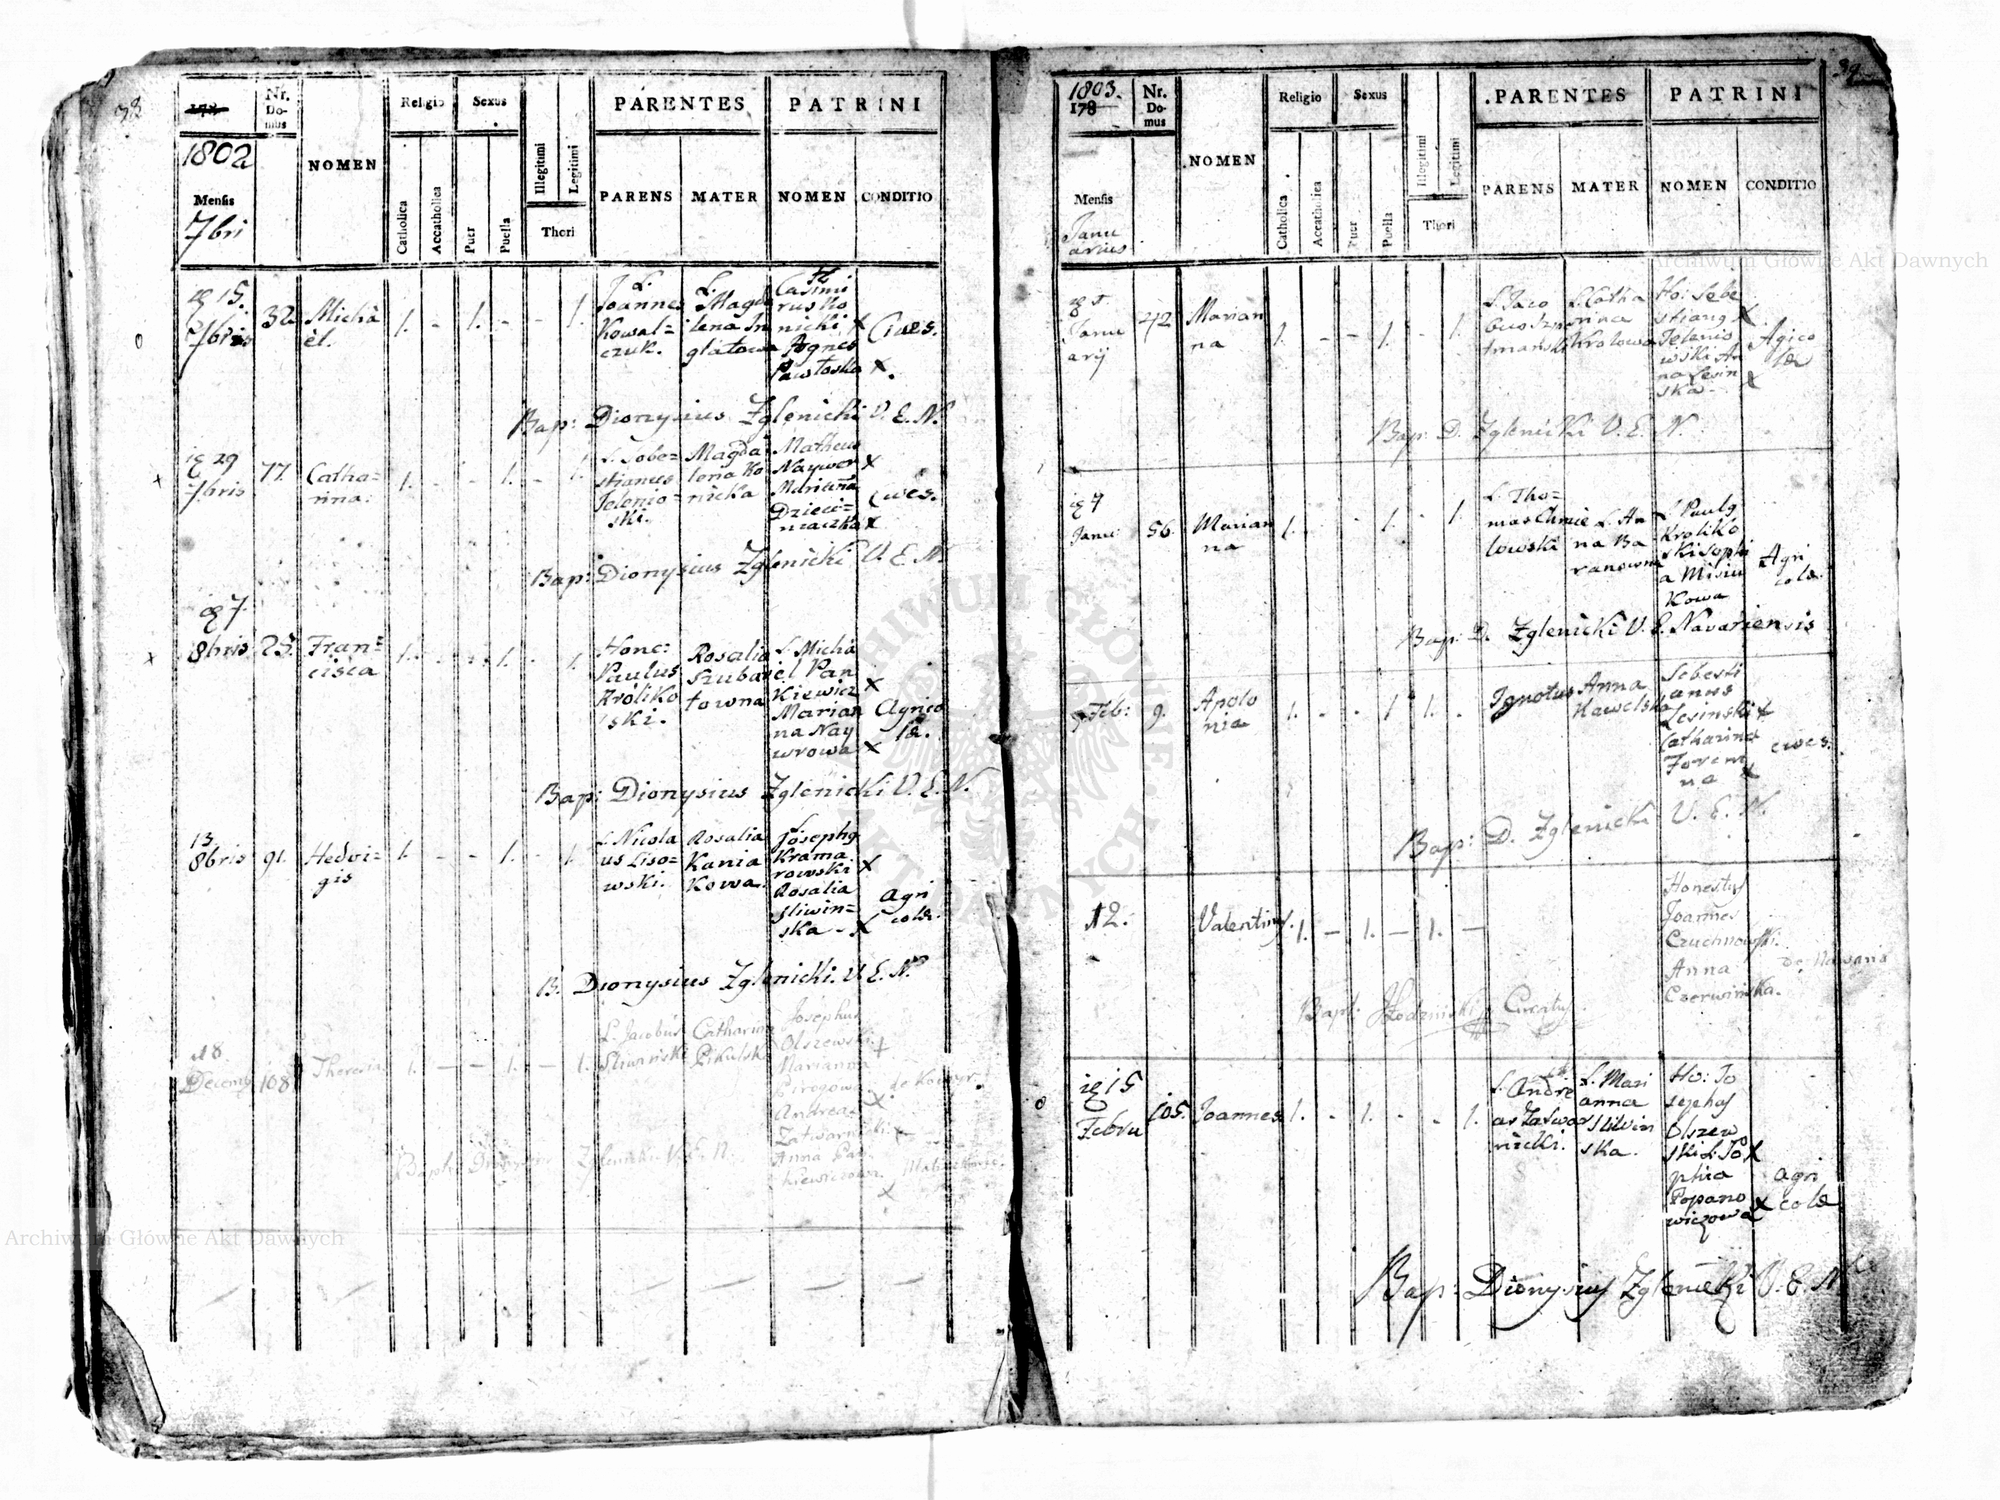 38
Nr. Domus
1802
Mensis
7bri
NOMEN
Religio
Catholica
Accatholica
Sexus
Puer
Puella
Illegitimi
Legitimi
Thori
PARENTES
PARENS
MATER
PATRINI
NOMEN
CONDITIO
15.
7bris
32.
Micha
ël.
1. - 1. - - 1.
Joannes
Kowal=
czuk.
L.
Magda
lena In
glatowa
Casimi
rus Ko
nicki X
Agnes
Pawłoska X.
Cives.
Bap: Dionysius Zglenicki V. E. N.
29
7bris
77.
Catha=
rina.
1. - - 1. - 1.
L. Sobe=
stianus
Jelenio=
ski.
Magda
lena Ko
nicka
Matheus
Naywer X
Marianna
Dzieci=
niaczka X
Cives.
Bap: Dionysius Zglenicki V. E. N.
7.
8bris
25.
Fran=
cisca
1. - - 1. - 1.
Hone:
Paulus
Króliko
wski.
Rosalia
Szuba
towna
L. Micha
el Pan
kiewicz X
Marian
na Nay
wrowa X
Agrico
læ.
Bap: Dionysius Zglenicki V. E. N.
13
8bris
91.
Hedvi=
gis
1. - - 1. - 1.
L. Nicola
us Liso=
wski.
Rosalia
Kania
Kowa.
Josephg
Krama
rowski X
Rosalia
Sliwin=
ska - X
Agri
colæ.
B. Dionysius Zglenicki. V. E. N.
18.
Decemb
108
Theresia
1. - - 1. - 1.
L. Jacobus
Sliwański
Catharina
Pikulska
Josephus
Olszewski +
Marianna
Pirogowa
Andreas X
Zatwarnicki
Anna Pan
kiewiczowa.
X
Bapt: Dionysius Zglenicki V. E. N.
39
1803.
178
Nr. Domus
Mensis
Janu
arius
NOMEN
Religio
Catholica
Accatholica
Sexus
Puer
Puella
Illegitimi
Legitimi
Thori
PARENTES
PARENS
MATER
PATRINI
NOMEN
CONDITIO
Janu
arij
42
Marian
na
1. - - 1. - 1.
L. Jaco
L. Catha
rina
Krolowa
Ho: Sebe
stiang X
Jelenio
wski An
na Lesin
ska - X
Agico
læ
Bap: D. Zglenicki V. E. N.
Janu
56.
Marian
na
1. - - 1. - 1.
L. Tho=
mas Chmie
lowski
L. An
na Ba
ranowna
L. Paulg
Kroliko
ski Sophi
a Misiu
Kowa
Agri
colæ.
Bap: D. Zglenicki V. E. Navariensis
Feb:
9.
Apolo
nia
1. - - 1 1. -
Ignotus
Anna
Kawelska
Sebesti
anus
Lesinski X
Catharina
Forem
na X
cives.
Bap: D. Zglenicki V. E. N.
12.
Valenting.
1. - 1. - 1. -
Honestus
Joannes
Czuchnowski.
Anna
Czerwińska.
de Navaria
Bapt: Curatus
15
Febru
105.
Joannes
1. - 1. - - 1.
L. Andre
as Zatwar
nicki.
L. Mari
anna
Sliwin
ska.
Ho: Jo
sephus
Olszew
ski L. So X
phia
Popano
wiczowa X
Agri
colæ
Bap: Dionysius Zglenicki V. E. N.
Archiwum Główne Akt Dawnych
Archiwum Główne Akt Dawnych
ARCHIWUM GŁÓWNE AKT DAWNYCH